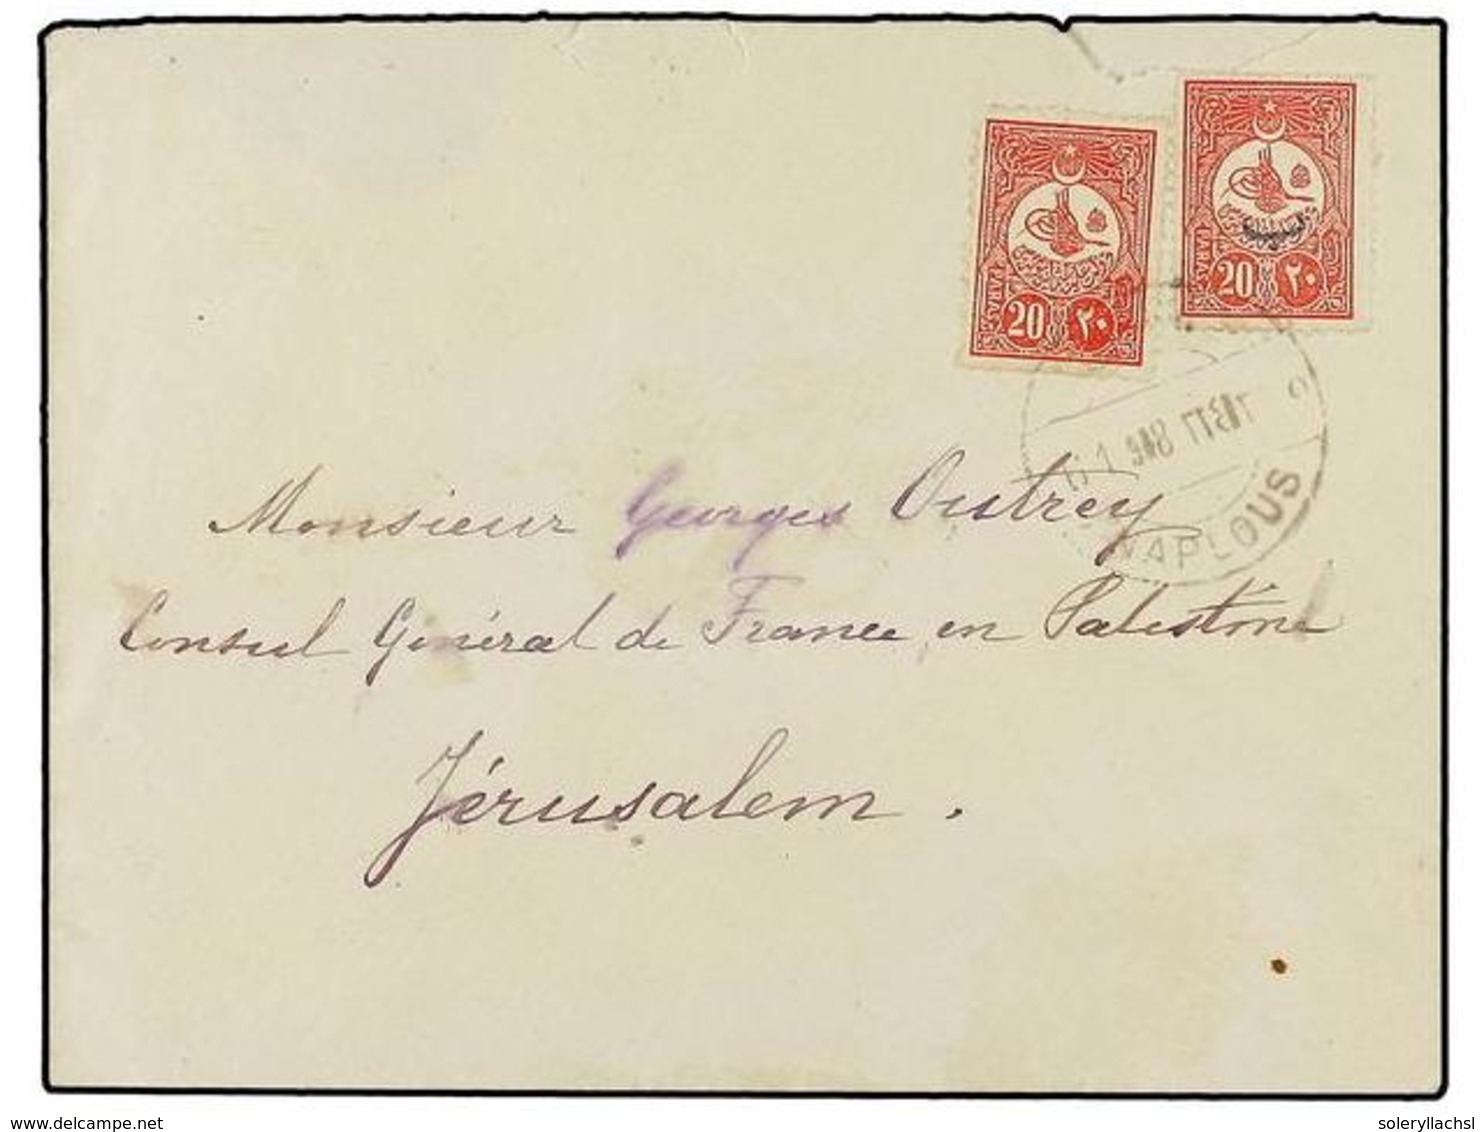 20 ٢٠
20 ٢٠
NAPLOUS
Monsieur Georges Outrey
Consul Général de France en Palestine
Jérusalem.
www.delcampe.net
soleryllachsl